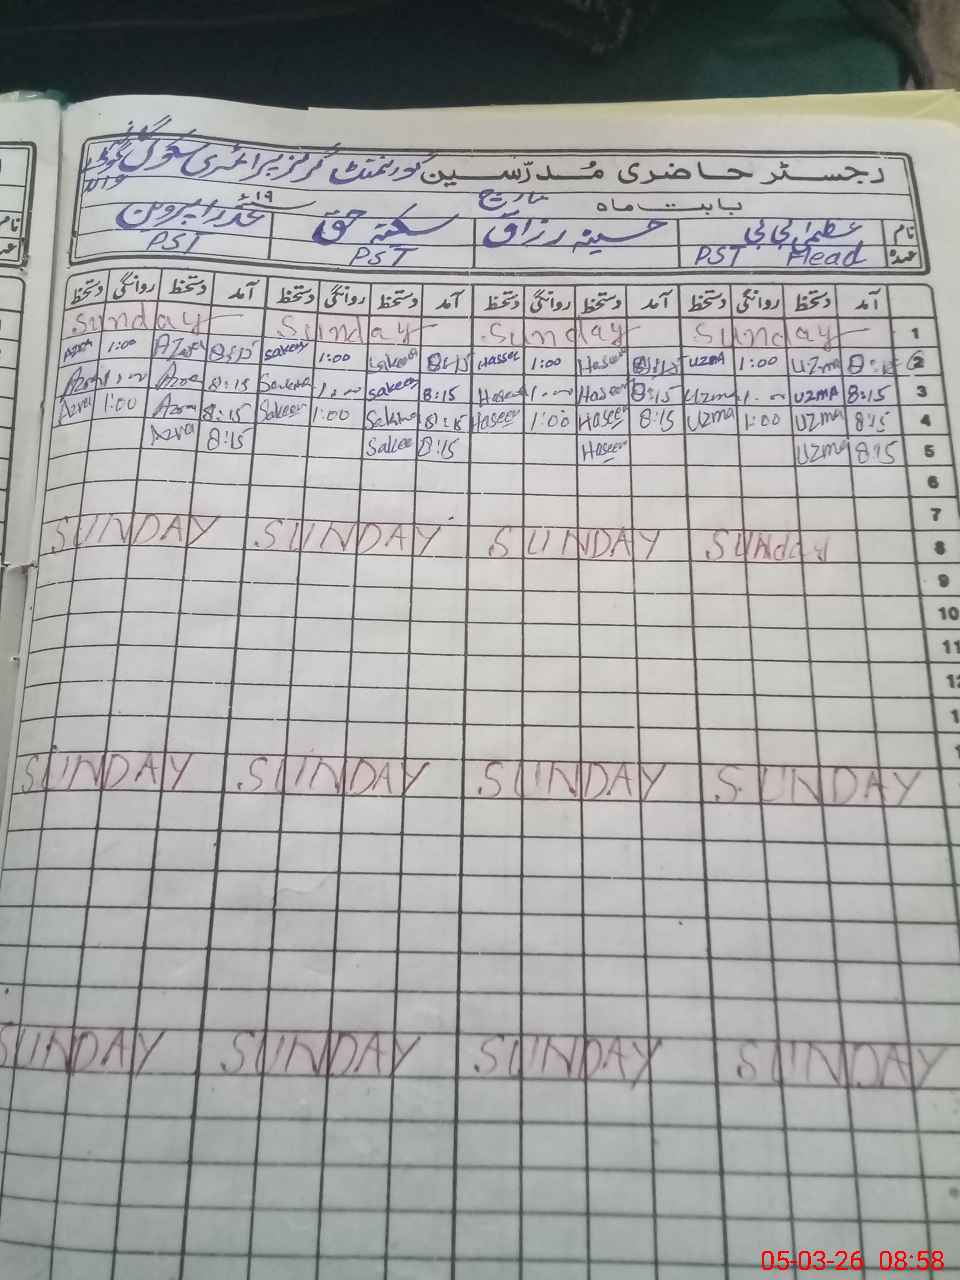 رجسٹر حاضری مُدرّسین گورنمنٹ گرلز پرائمری سکول
بابت ماہ مارچ ۱۹ء
نام عظمیٰ بی بی حسینہ رزاق سکینہ حق عذرا پروین
عہدہ Head PST PST PST
آمد دستخط روانگی دستخط آمد دستخط روانگی دستخط آمد دستخط روانگی دستخط آمد دستخط روانگی دستخط
Sunday Sunday Sunday Sunday 1
Azra 1:00 Azra 8:15 Sakeen 1:00 Sakeen 8:15 Haseen 1:00 Haseen 8:15 Uzma 1:00 Uzma 8:15 2
Azra 1:00 Azra 8:15 Sakeen 1:00 Sakeen 8:15 Haseen 1:00 Haseen 8:15 Uzma 1:00 UZMA 8:15 3
Azra 1:00 Azra 8:15 Sakeen 1:00 Sakeen 8:15 Haseen 1:00 Haseen 8:15 Uzma 1:00 UZMA 8:15 4
Azra 8:15 Sakeen 8:15 Haseen UZMA 8:15 5
6
7
SUNDAY SUNDAY SUNDAY SUNday 8
9
10
11
12
1
SUNDAY SUNDAY SUNDAY SUNDAY
SUNDAY SUNDAY SUNDAY SUNDAY
05-03-26 08:58